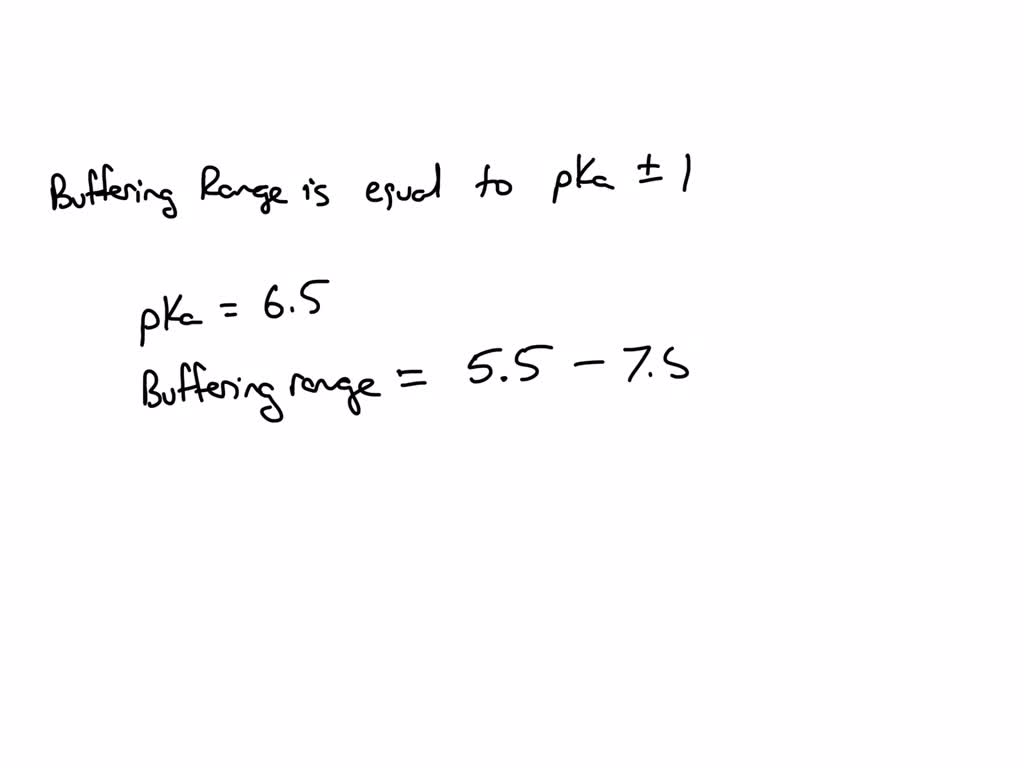 Buffering Range is equal to pKa ± 1
pKa = 6.5
Buffering range = 5.5 – 7.5